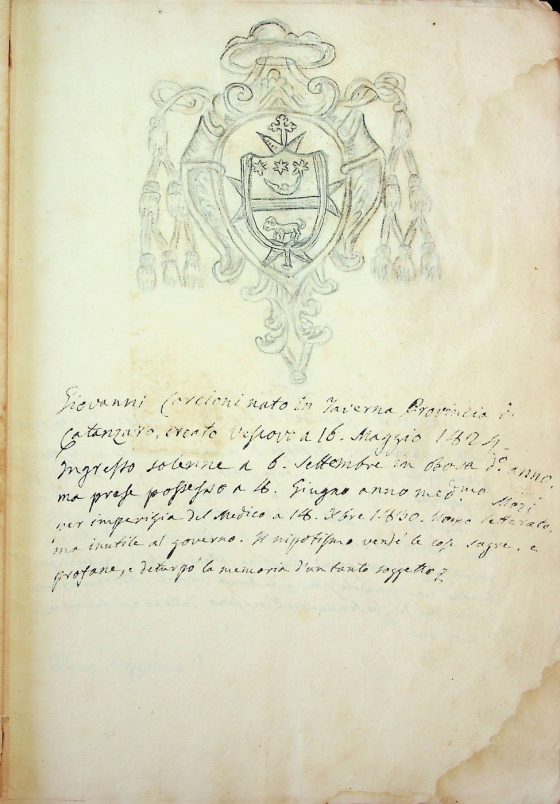 Giovanni Corcioni nato in Taverna Provincia di
Catanzaro, creato Vescovo a 16. Maggio 1824.
Ingresso solenne a 6. Settembre in Bova d.o anno,
ma prese possesso a 4. Giugno anno med.mo Morì
per imperizia del Medico a 18. Xbre 1830. Uomo letterato,
ma inutile al governo. Il nipotismo vendé le cose sagre, e
profane, e deturpó la memoria d'un tanto soggetto